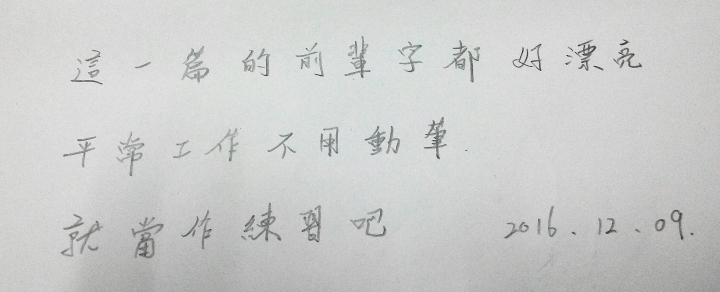 這一篇的前輩字都好漂亮
平常工作不用動筆.
就當作練習吧 2016.12.09.